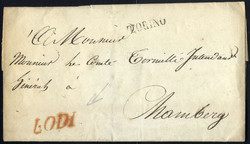 TORINO
A Monsieur
Monsieur le Comte
Général à
LODI
Chambery